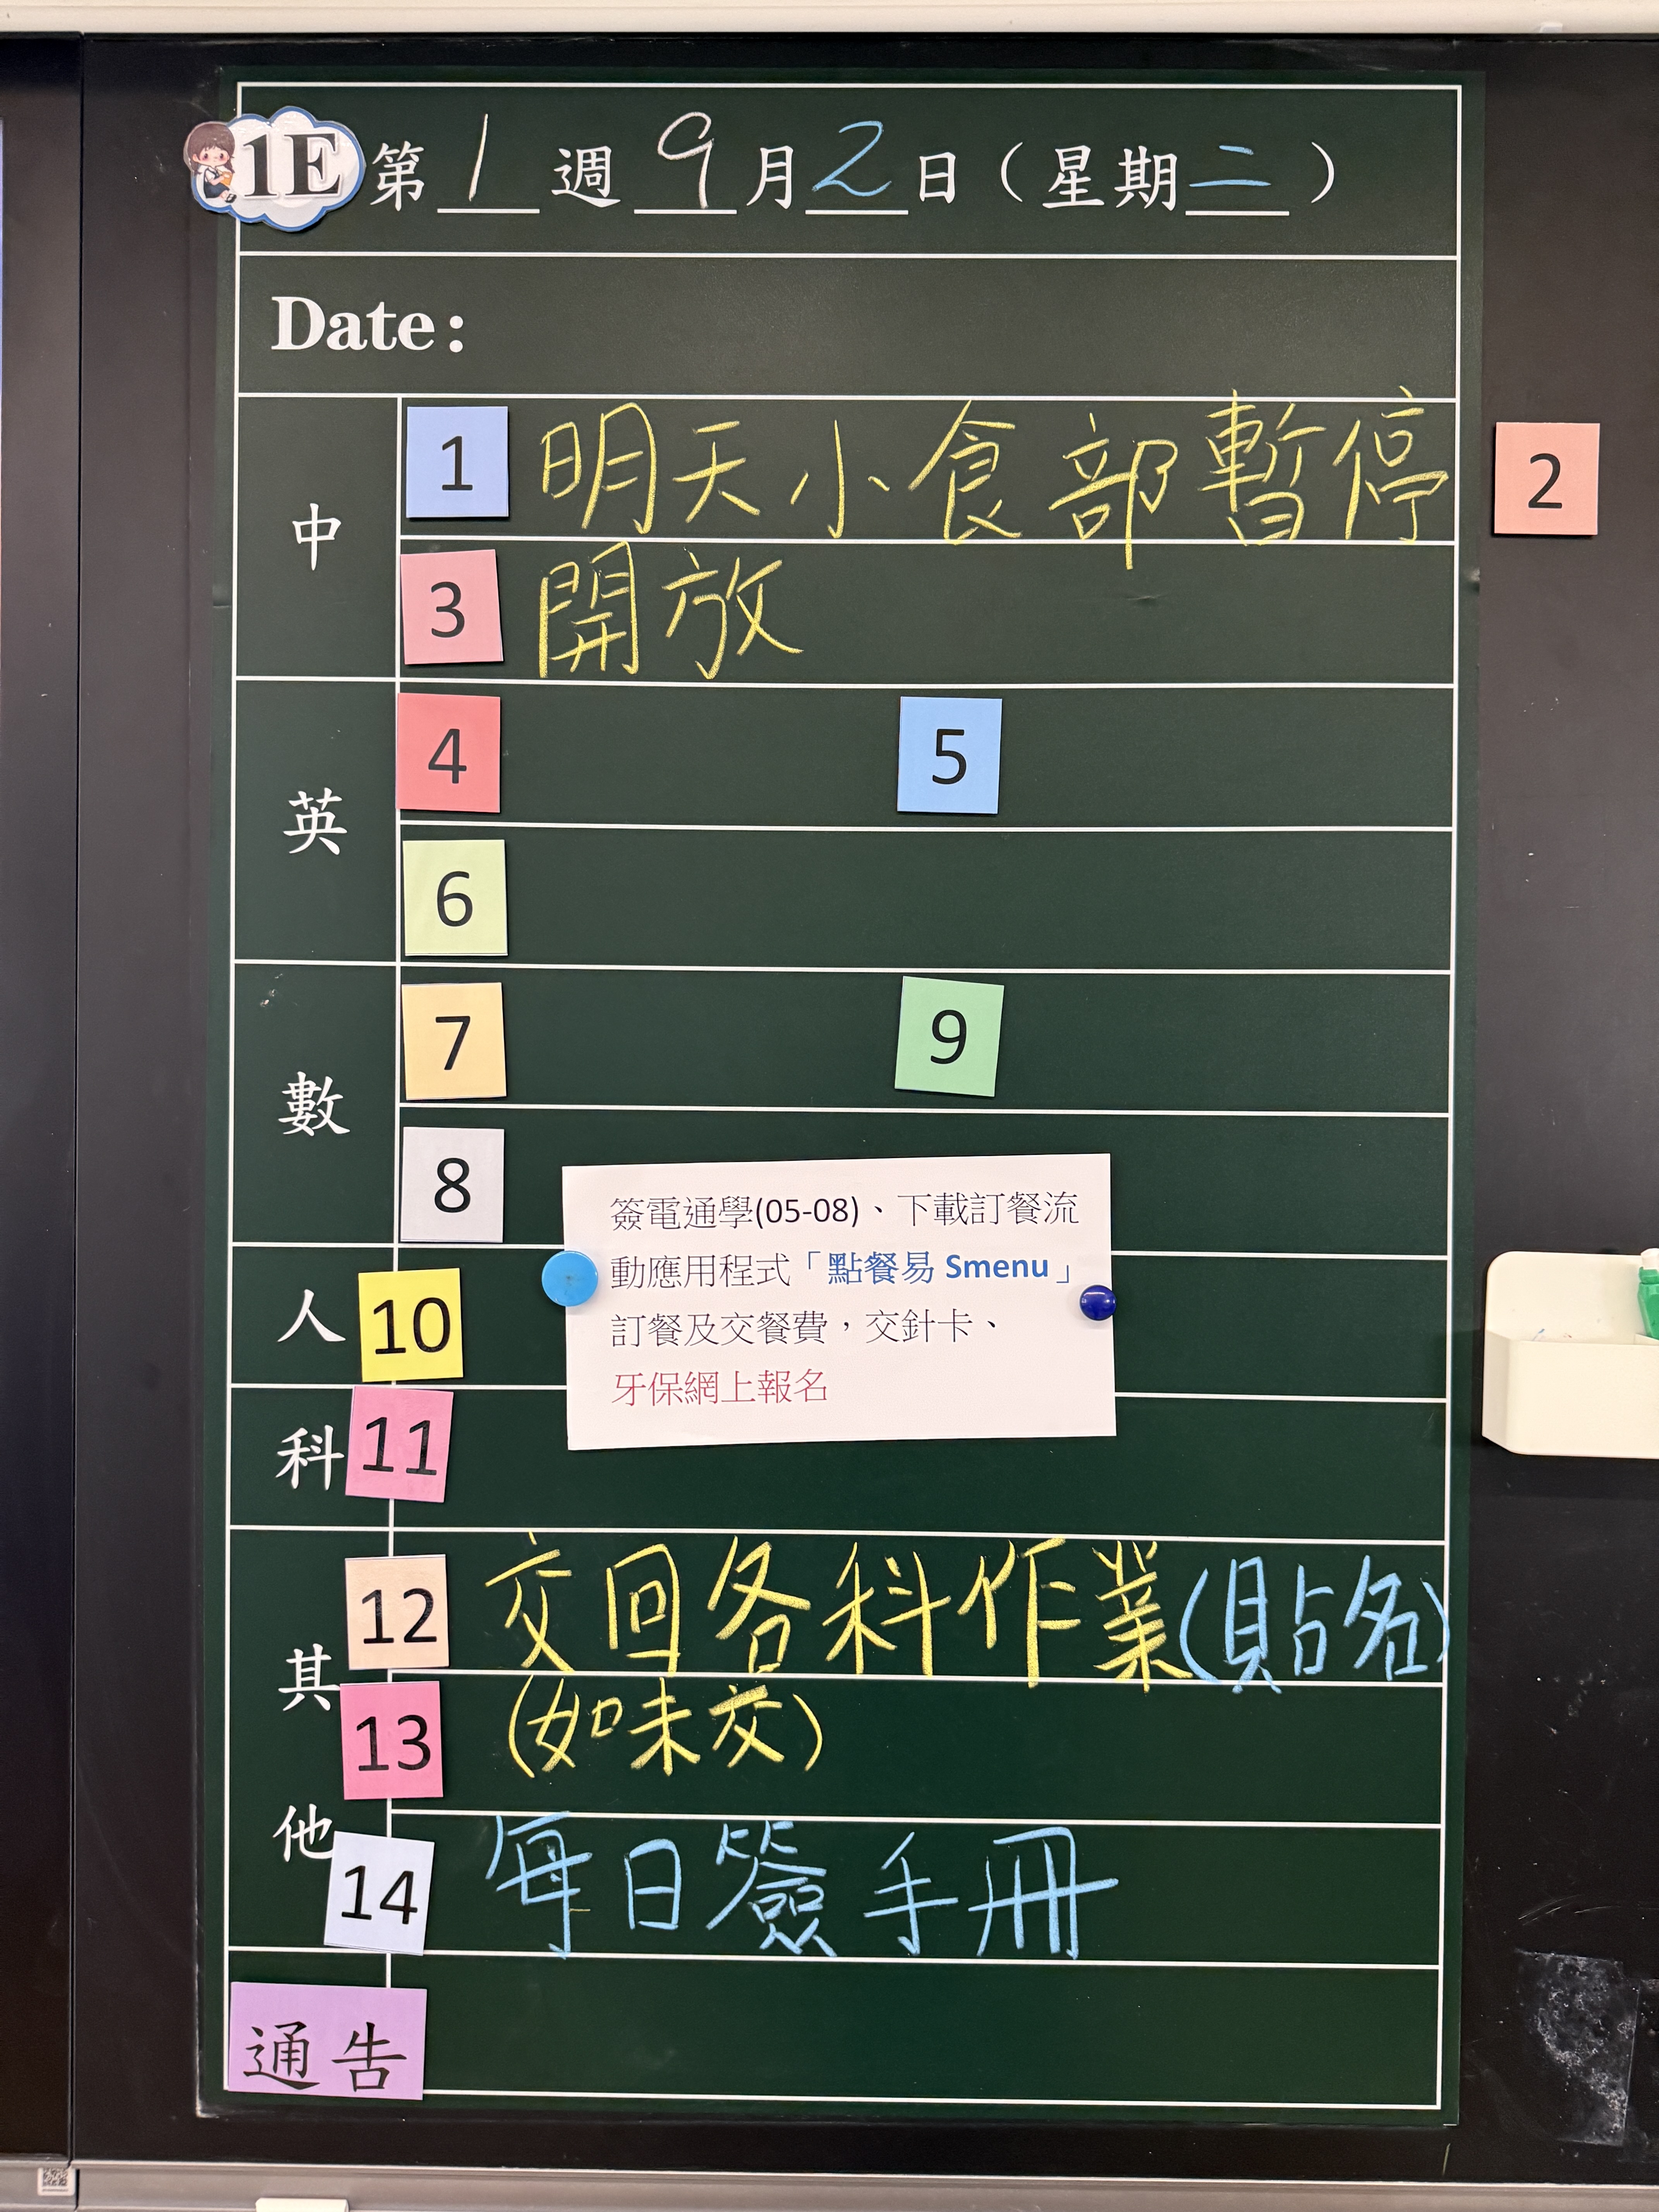 1E 第 1 週 9 月 2 日（星期 二 ）
Date:
中
1 明天小食部暫停 2
3 開放
英
4 5
6
數
7 9
8
簽電通學(05-08)、下載訂餐流
動應用程式「點餐易 Smenu」
訂餐及交餐費，交針卡、
牙保網上報名
人 10
科 11
其他
12 交回各科作業(貼名)
13 (如未交)
14 每日簽手冊
通告